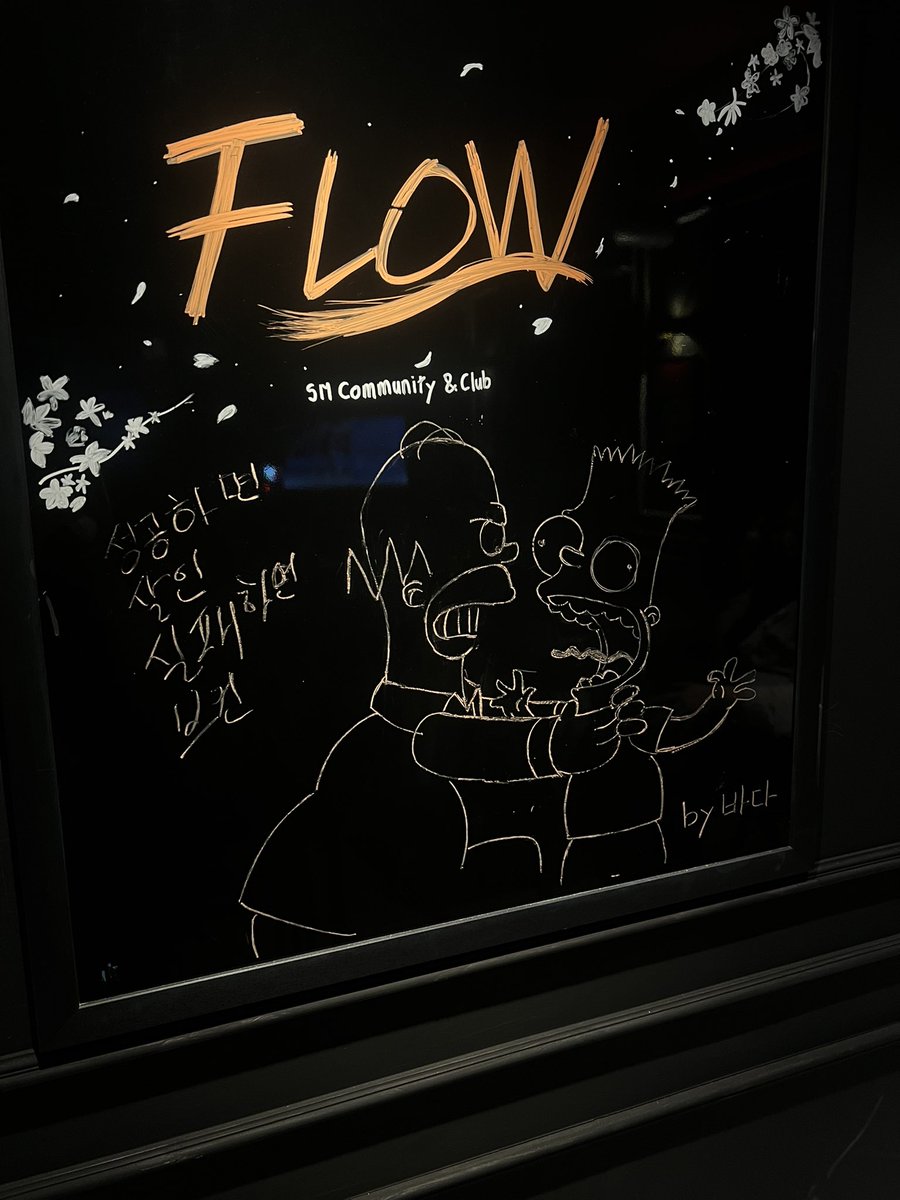 FLOW
SM Community & Club
성공하면
살인
실패하면
브컨
by 바다